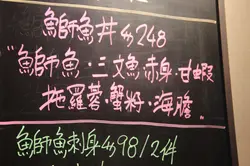 鰤師魚丼$248
"鰤師魚·三文魚赤身·甘蝦
拖羅蓉·蟹粉·海膽
鰤師魚刺身$98/2件